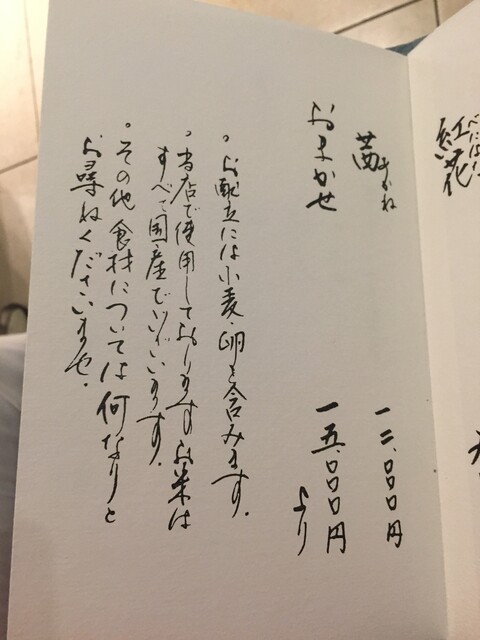 紅花
べにばな
茜 あかね 一二、〇〇〇円
おまかせ 一五、〇〇〇円より
。お献立には小麦・卵を含みます。
。当店で使用しておりますお米は
すべて国産でございます。
。その他食材については何なりと
お尋ねくださいませ。